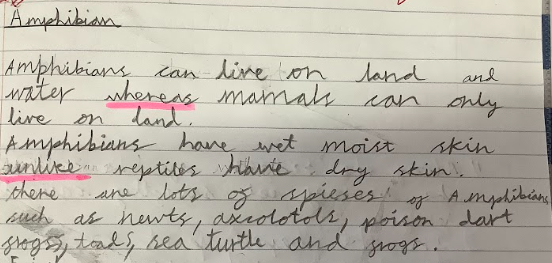 Amphibian
Amphibians can live on land and
water whereas mamals can only
live on land.
Amphibians have wet moist skin
unlike reptiles have dry skin.
there are lots of spieses of Amphibians
such as newts, axolotols, poison dart
frogs, toads, sea turtle and frogs.